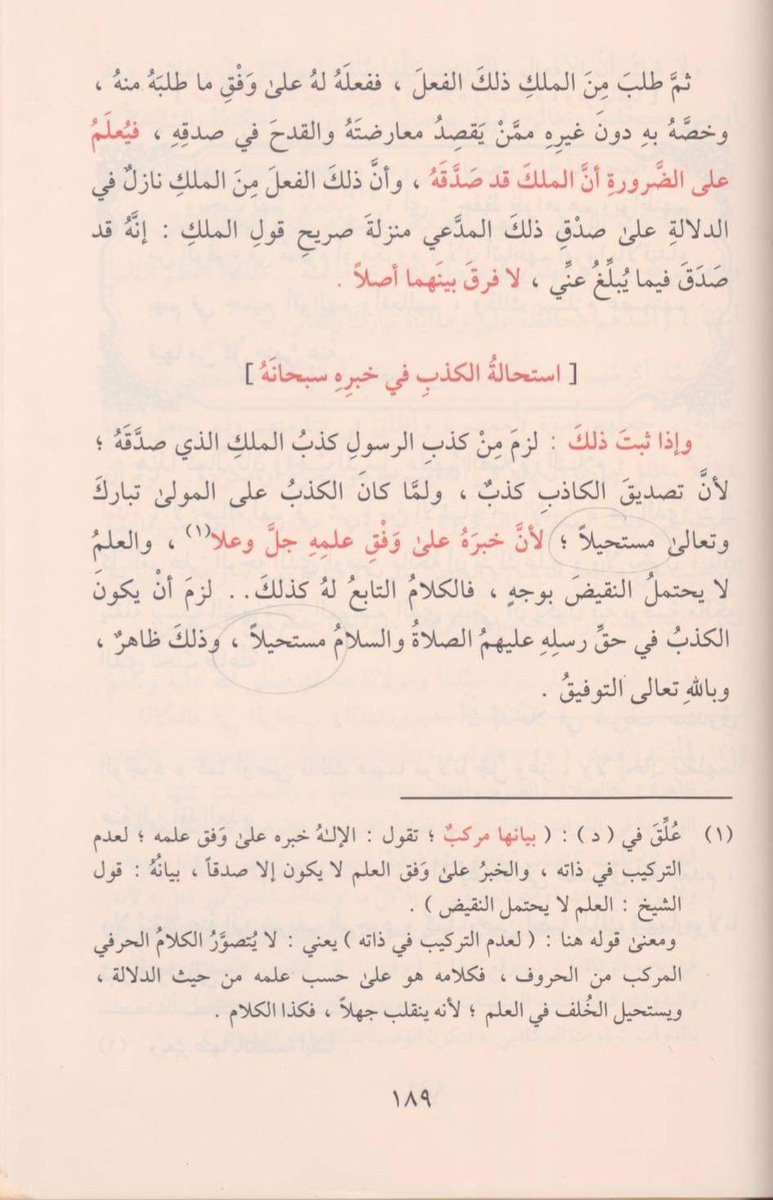 ثمَّ طلبَ مِنَ الملكِ ذلكَ الفعلَ ، ففعلَهُ لهُ علىٰ وَفْقِ ما طلبَهُ منهُ ،
وخصَّهُ بهِ دونَ غيرِهِ ممَّنْ يَقصِدُ معارضتَهُ والقدحَ في صدقِهِ ، فيُعلَمُ
على الضَّرورةِ أنَّ الملكَ قد صَدَّقَهُ ، وأنَّ ذلكَ الفعلَ مِنَ الملكِ نازلٌ في
الدلالةِ علىٰ صدْقِ ذلكَ المدَّعي منزلةَ صريحِ قولِ الملكِ : إنَّهُ قد
صَدَقَ فيما يُبلِّغُ عنِّي ، لا فرقَ بينَهما أصلاً .
[ استحالةُ الكذبِ في خبرِهِ سبحانَهُ ]
وإذا ثبتَ ذلكَ : لزمَ مِنْ كذبِ الرسولِ كذبُ الملكِ الذي صدَّقَهُ ؛
لأنَّ تصديقَ الكاذبِ كذبٌ ، ولمَّا كانَ الكذبُ على المولىٰ تباركَ
وتعالىٰ مستحيلاً ؛ لأنَّ خبرَهُ علىٰ وَفْقِ علمِهِ جلَّ وعلا(١) ، والعلمُ
لا يحتملُ النقيضَ بوجهٍ ، فالكلامُ التابعُ لهُ كذلكَ.. لزمَ أنْ يكونَ
الكذبُ في حقِّ رسلِهِ عليهمُ الصلاةُ والسلامُ مستحيلاً ، وذلكَ ظاهرٌ ،
وباللهِ تعالى التوفيقُ .
(١) عُلِّقَ في ( د ) : ( بيانها مركبٌ ؛ تقول : الإلـٰهُ خبره علىٰ وَفق علمه ؛ لعدم
التركيب في ذاته ، والخبرُ علىٰ وَفق العلم لا يكون إلا صدقاً ، بيانُهُ : قول
الشيخ : العلم لا يحتمل النقيض ) .
ومعنىٰ قوله هنا : ( لعدم التركيب في ذاته ) يعني : لا يُتصوَّرُ الكلامُ الحرفي
المركب من الحروف ، فكلامه هو علىٰ حسب علمه من حيث الدلالة ،
ويستحيل الخُلف في العلم ؛ لأنه ينقلب جهلاً ، فكذا الكلام .
١٨٩